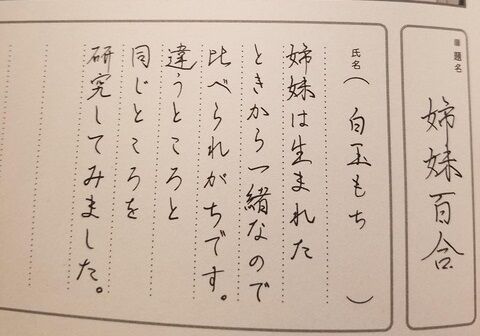 題名
姉妹百合
氏名（ 白玉もち ）
姉妹は生まれた
ときから一緒なので
比べられがちです。
違うところと
同じところを
研究してみました。